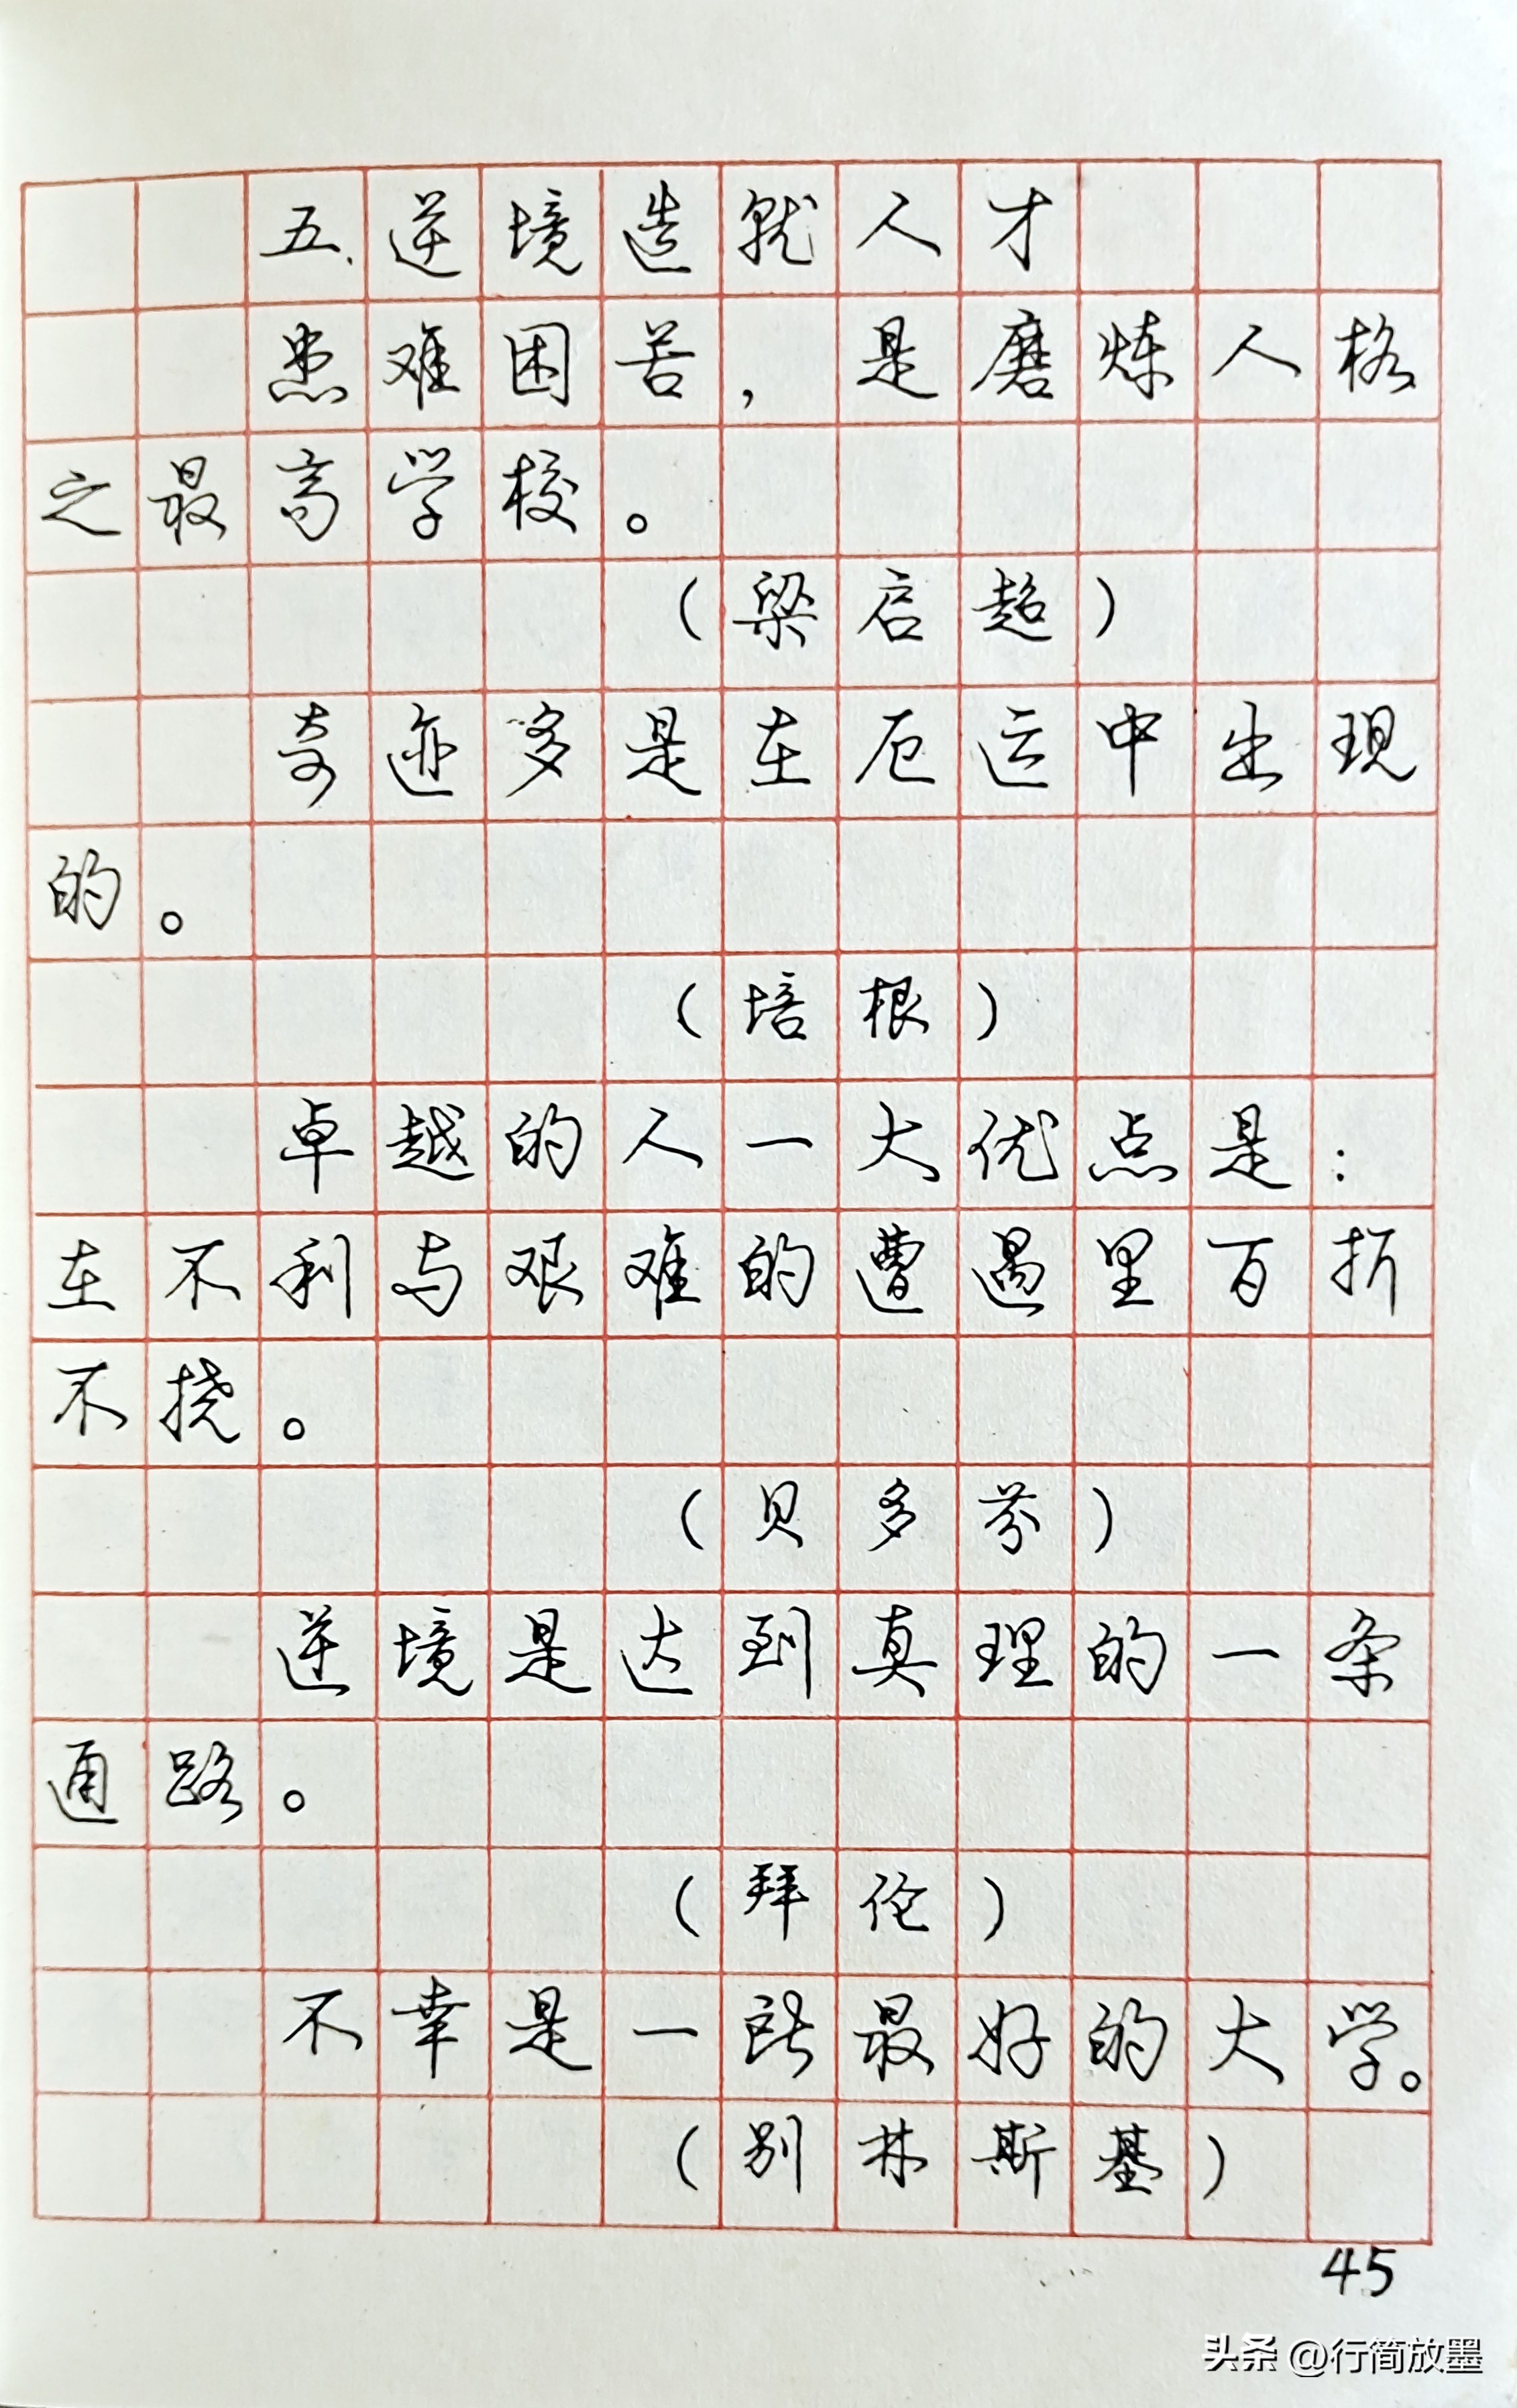 五、逆境造就人才
患难困苦，是磨炼人格
之最高学校。
（梁启超）
奇迹多是在厄运中出现
的。
（培根）
卓越的人一大优点是：
在不利与艰难的遭遇里百折
不挠。
（贝多芬）
逆境是达到真理的一条
通路。
（拜伦）
不幸是一所最好的大学。
（别林斯基）
45
头条 @行简放墨